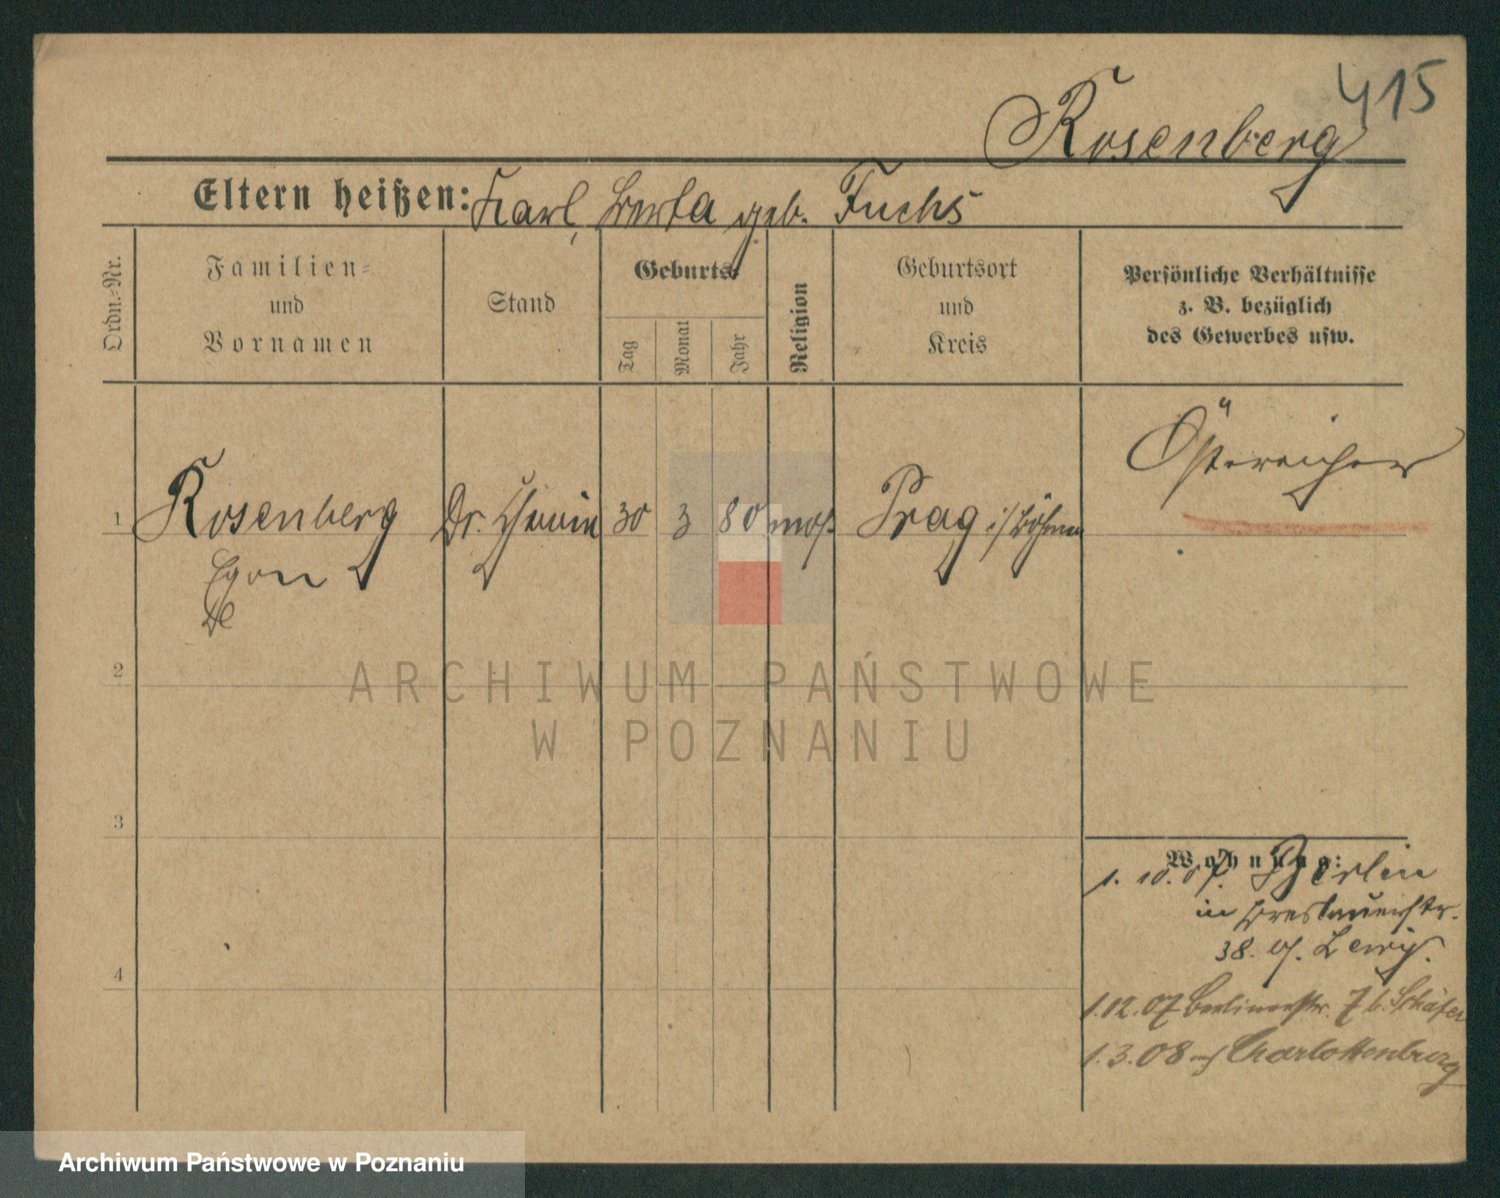 415
Rosenberg
Eltern heißen: Karl, Berta geb. Fuchs
Ordn.-Nr.
Familien- und Vornamen
Stand
Geburts-
Tag
Monat
Jahr
Religion
Geburtsort und Kreis
Persönliche Verhältnisse
z. B. bezüglich
des Gewerbes usw.
Östereicher
1 Rosenberg Dr. 30 3 80 mos. Prag i/Böhmen
Egon
2
ARCHIWUM PAŃSTWOWE
W POZNANIU
3
Wohnung:
1. 10. 07. Berlin
in Breslauerstr.
38.
4
1.12.07 Berlinerstr. 7 b. Schäfer
1.3.08 Charlottenburg
Archiwum Państwowe w Poznaniu